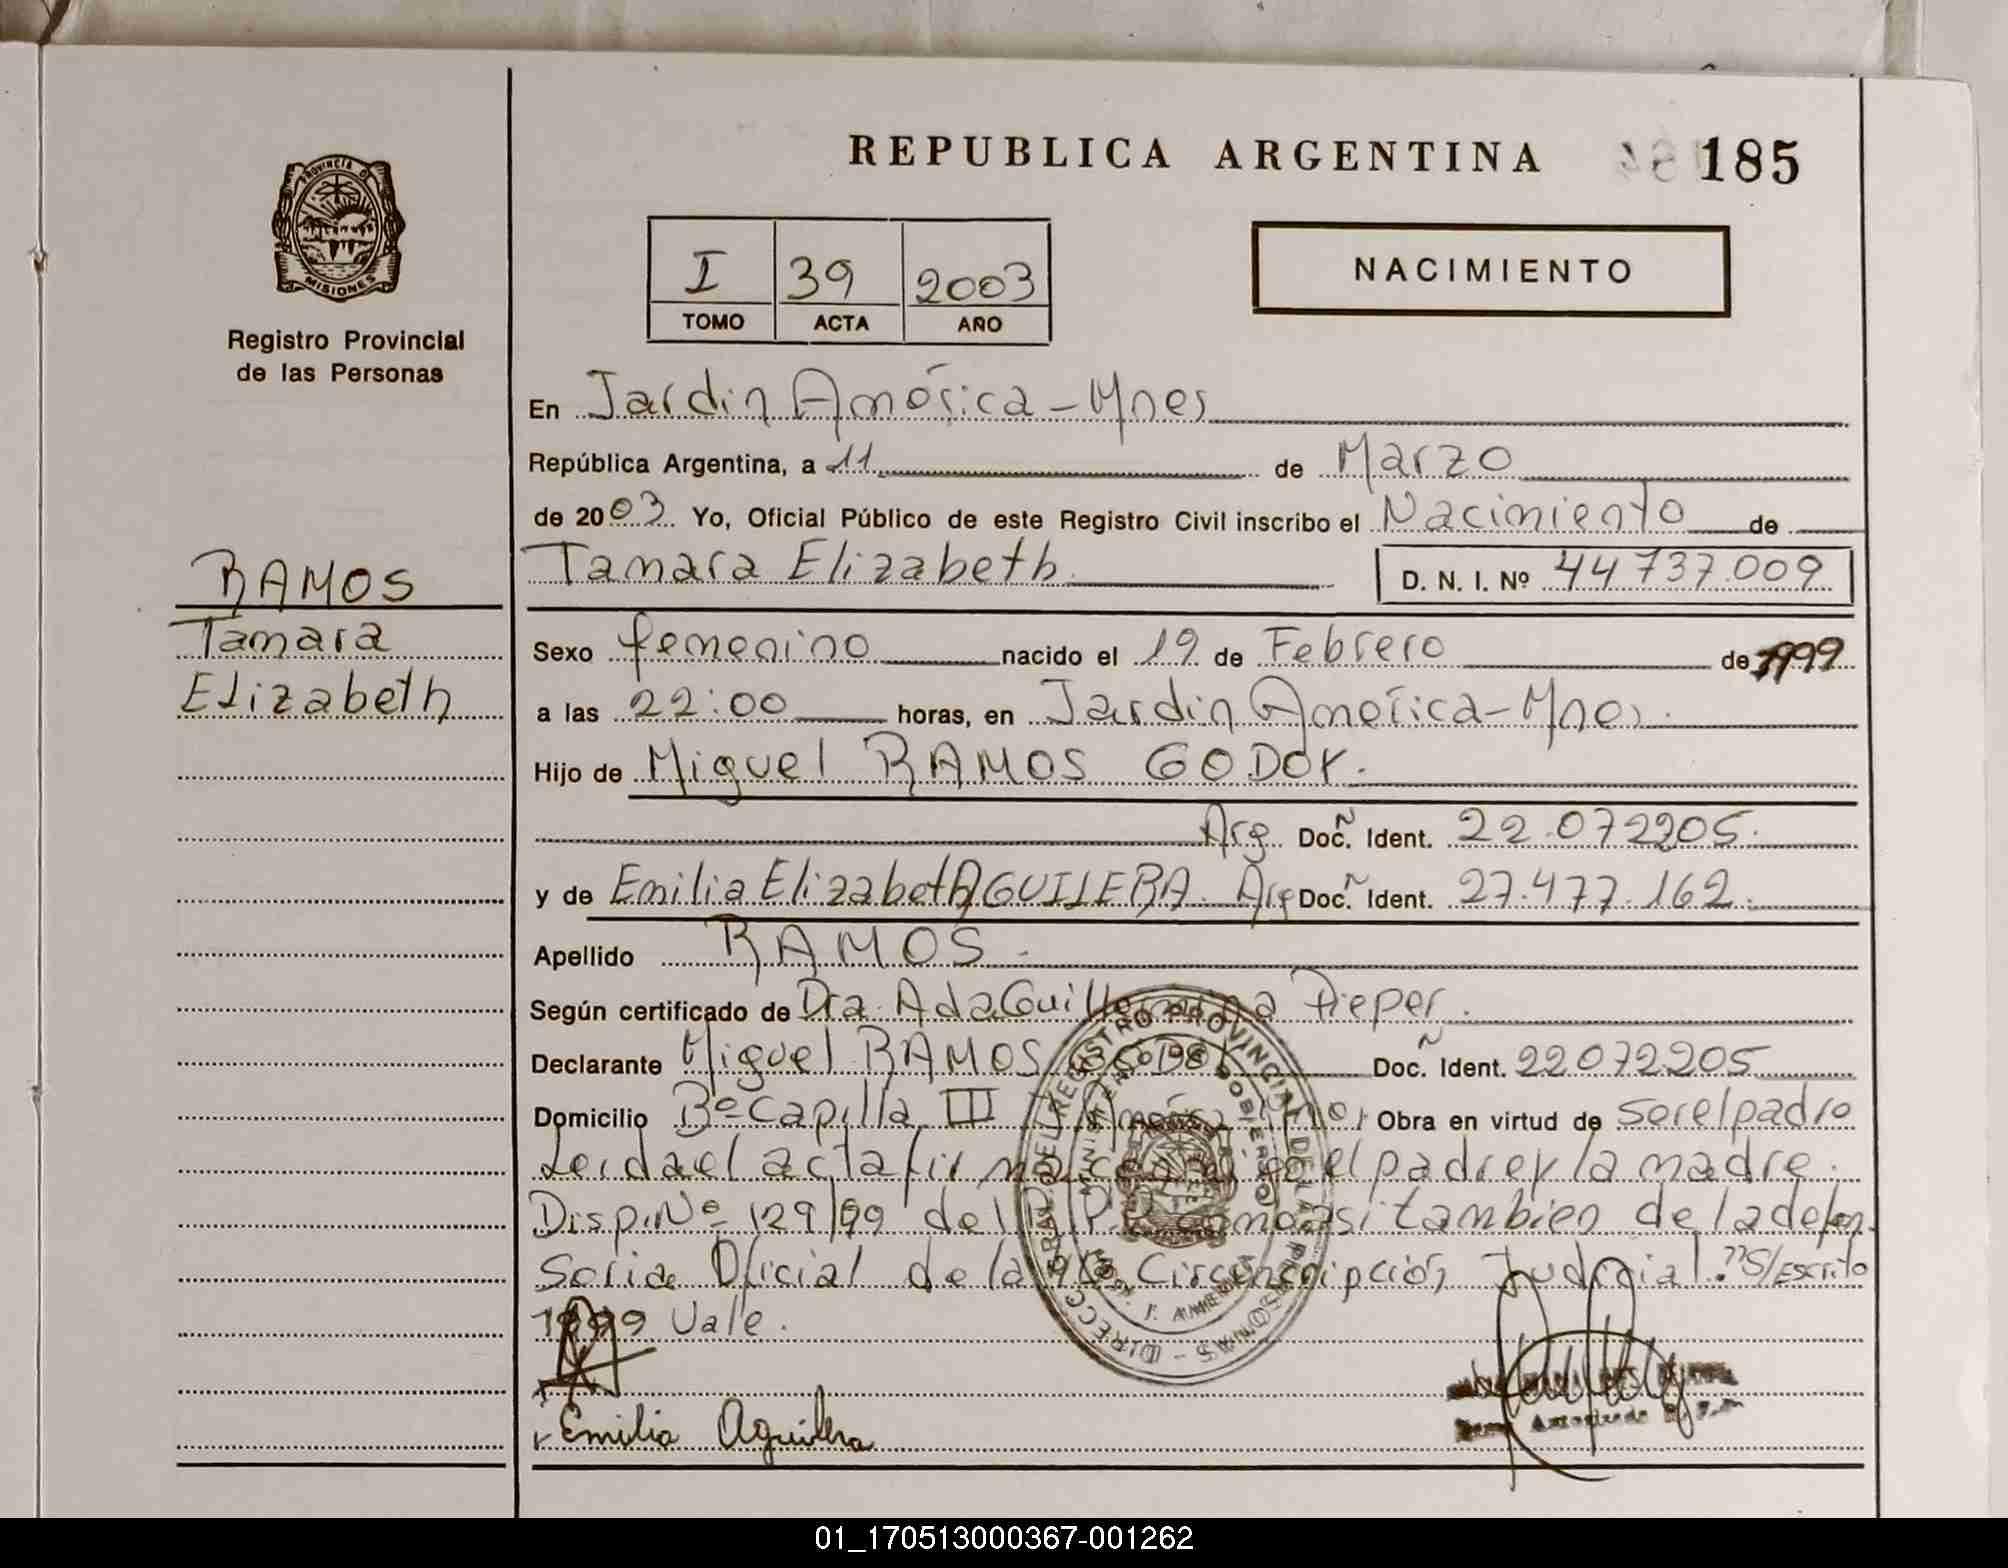 REPUBLICA ARGENTINA
185
PROVINCIA DE
MISIONES
Registro Provincial
de las Personas
I 39 2003
TOMO ACTA AÑO
NACIMIENTO
En Jardin América - Mnes
República Argentina, a 11 de Marzo
de 2003. Yo, Oficial Público de este Registro Civil inscribo el Nacimiento de
RAMOS
Tamara Elizabeth
Tamara Elizabeth D. N. I. Nº 44 737.009
Sexo femenino nacido el 19 de Febrero de 1999
a las 22:00 horas, en Jardin América - Mnes.
Hijo de Miguel RAMOS GODOY.
Arg. Doc. Ident. 22.072205.
y de Emilia Elizabeth AGUILERA. Arg Doc. Ident. 27.477.162.
Apellido RAMOS.
Según certificado de Dra. Ada Guillermina Pieper.
Declarante Miguel RAMOS Doc. Ident. 22072205
Domicilio Bº Capilla III Obra en virtud de ser el padre
Leida el acta firma conmigo el padre y la madre.
Disp. Nº 129/99 del R.P.P. como asi tambien de la defen
soria Oficial de la Circunscripción Judicial. S/Escrito
1999 Vale.
Emilia Aguilera
DIRECC. GRAL. DEL REGISTRO PROVINCIAL DE LAS PERSONAS
01_170513000367-001262